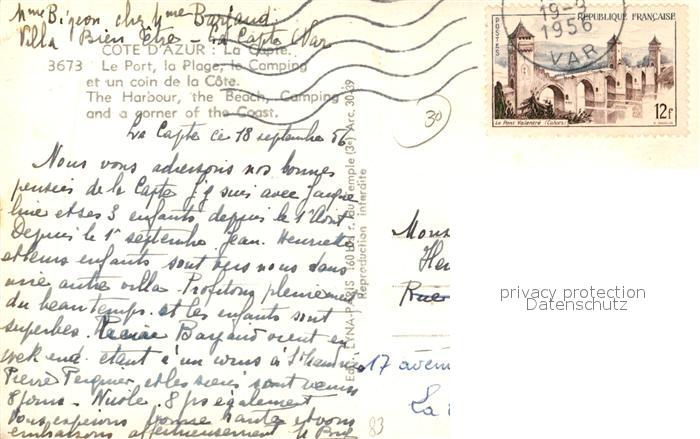 Mme Bigeon chez Mme Bargaud
Villa Bien Etre - La Capte Var
COTE D'AZUR : La Capte.
3673 Le Port, la Plage, le Camping
et un coin de la Côte.
The Harbour, the Beach, Camping
and a corner of the Coast.
La Capte ce 18 septembre 56
Nous vous adressons nos bonnes
pensées de la Capte j'y suis avec Jacque
line et ses 3 enfants depuis le 1er Aout
Depuis le 1er septembre Jean. Henriette
et leurs enfants sont avec nous dans
une autre villa. Profitons pleinement
du beau temps. et les enfants sont
superbes. Bargaud vient en
week end. étant à
Pierre et les siens sont venus
8 jours - Nicole. 8 jrs également
Vous espérons bonne santé et vous
embrassons affectueusement
30
LYNA-PARIS 160 bis r. du Temple (3e) Arc. 30-39
Reproduction interdite
19-9
1956
VAR
POSTES
REPUBLIQUE FRANÇAISE
12f
Le Pont Valentré (Cahors)
Mons
Hen
Rue
17 aven
La
83
privacy protection
Datenschutz